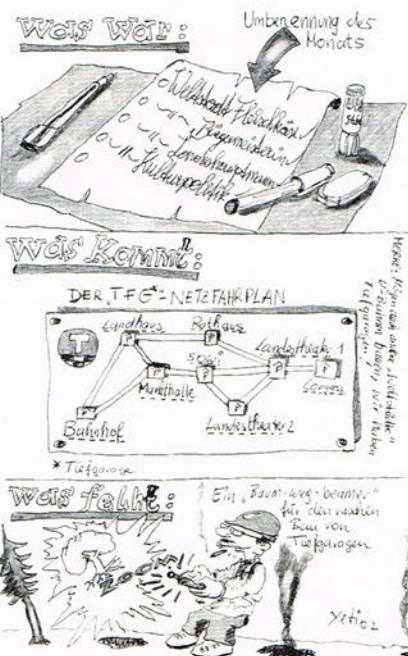 Was War:
Umbenennung des
Monats
Weltstadt Fleischkäse
-"- Bürgermeisterin
-"- Landeshauptmann
-"- Kulturpolitik
Was Kommt:
DER „TFG*“-NETZFAHRPLAN
Landhaus
Rathaus
Landestheater 1
T
P
P
P
P
P
P
P
P
Markthalle
Congress
Bahnhof
Landestheater 2
* Tiefgarage
Merke: Mögen auch andre „Weltstädte“
U-Bahnen bauen, wir haben
Tiefgaragen.
Was fehlt:
Ein „Baum-weg-beamer“
für den raschen
Bau von
Tiefgaragen
ZOOM
Yeti 02